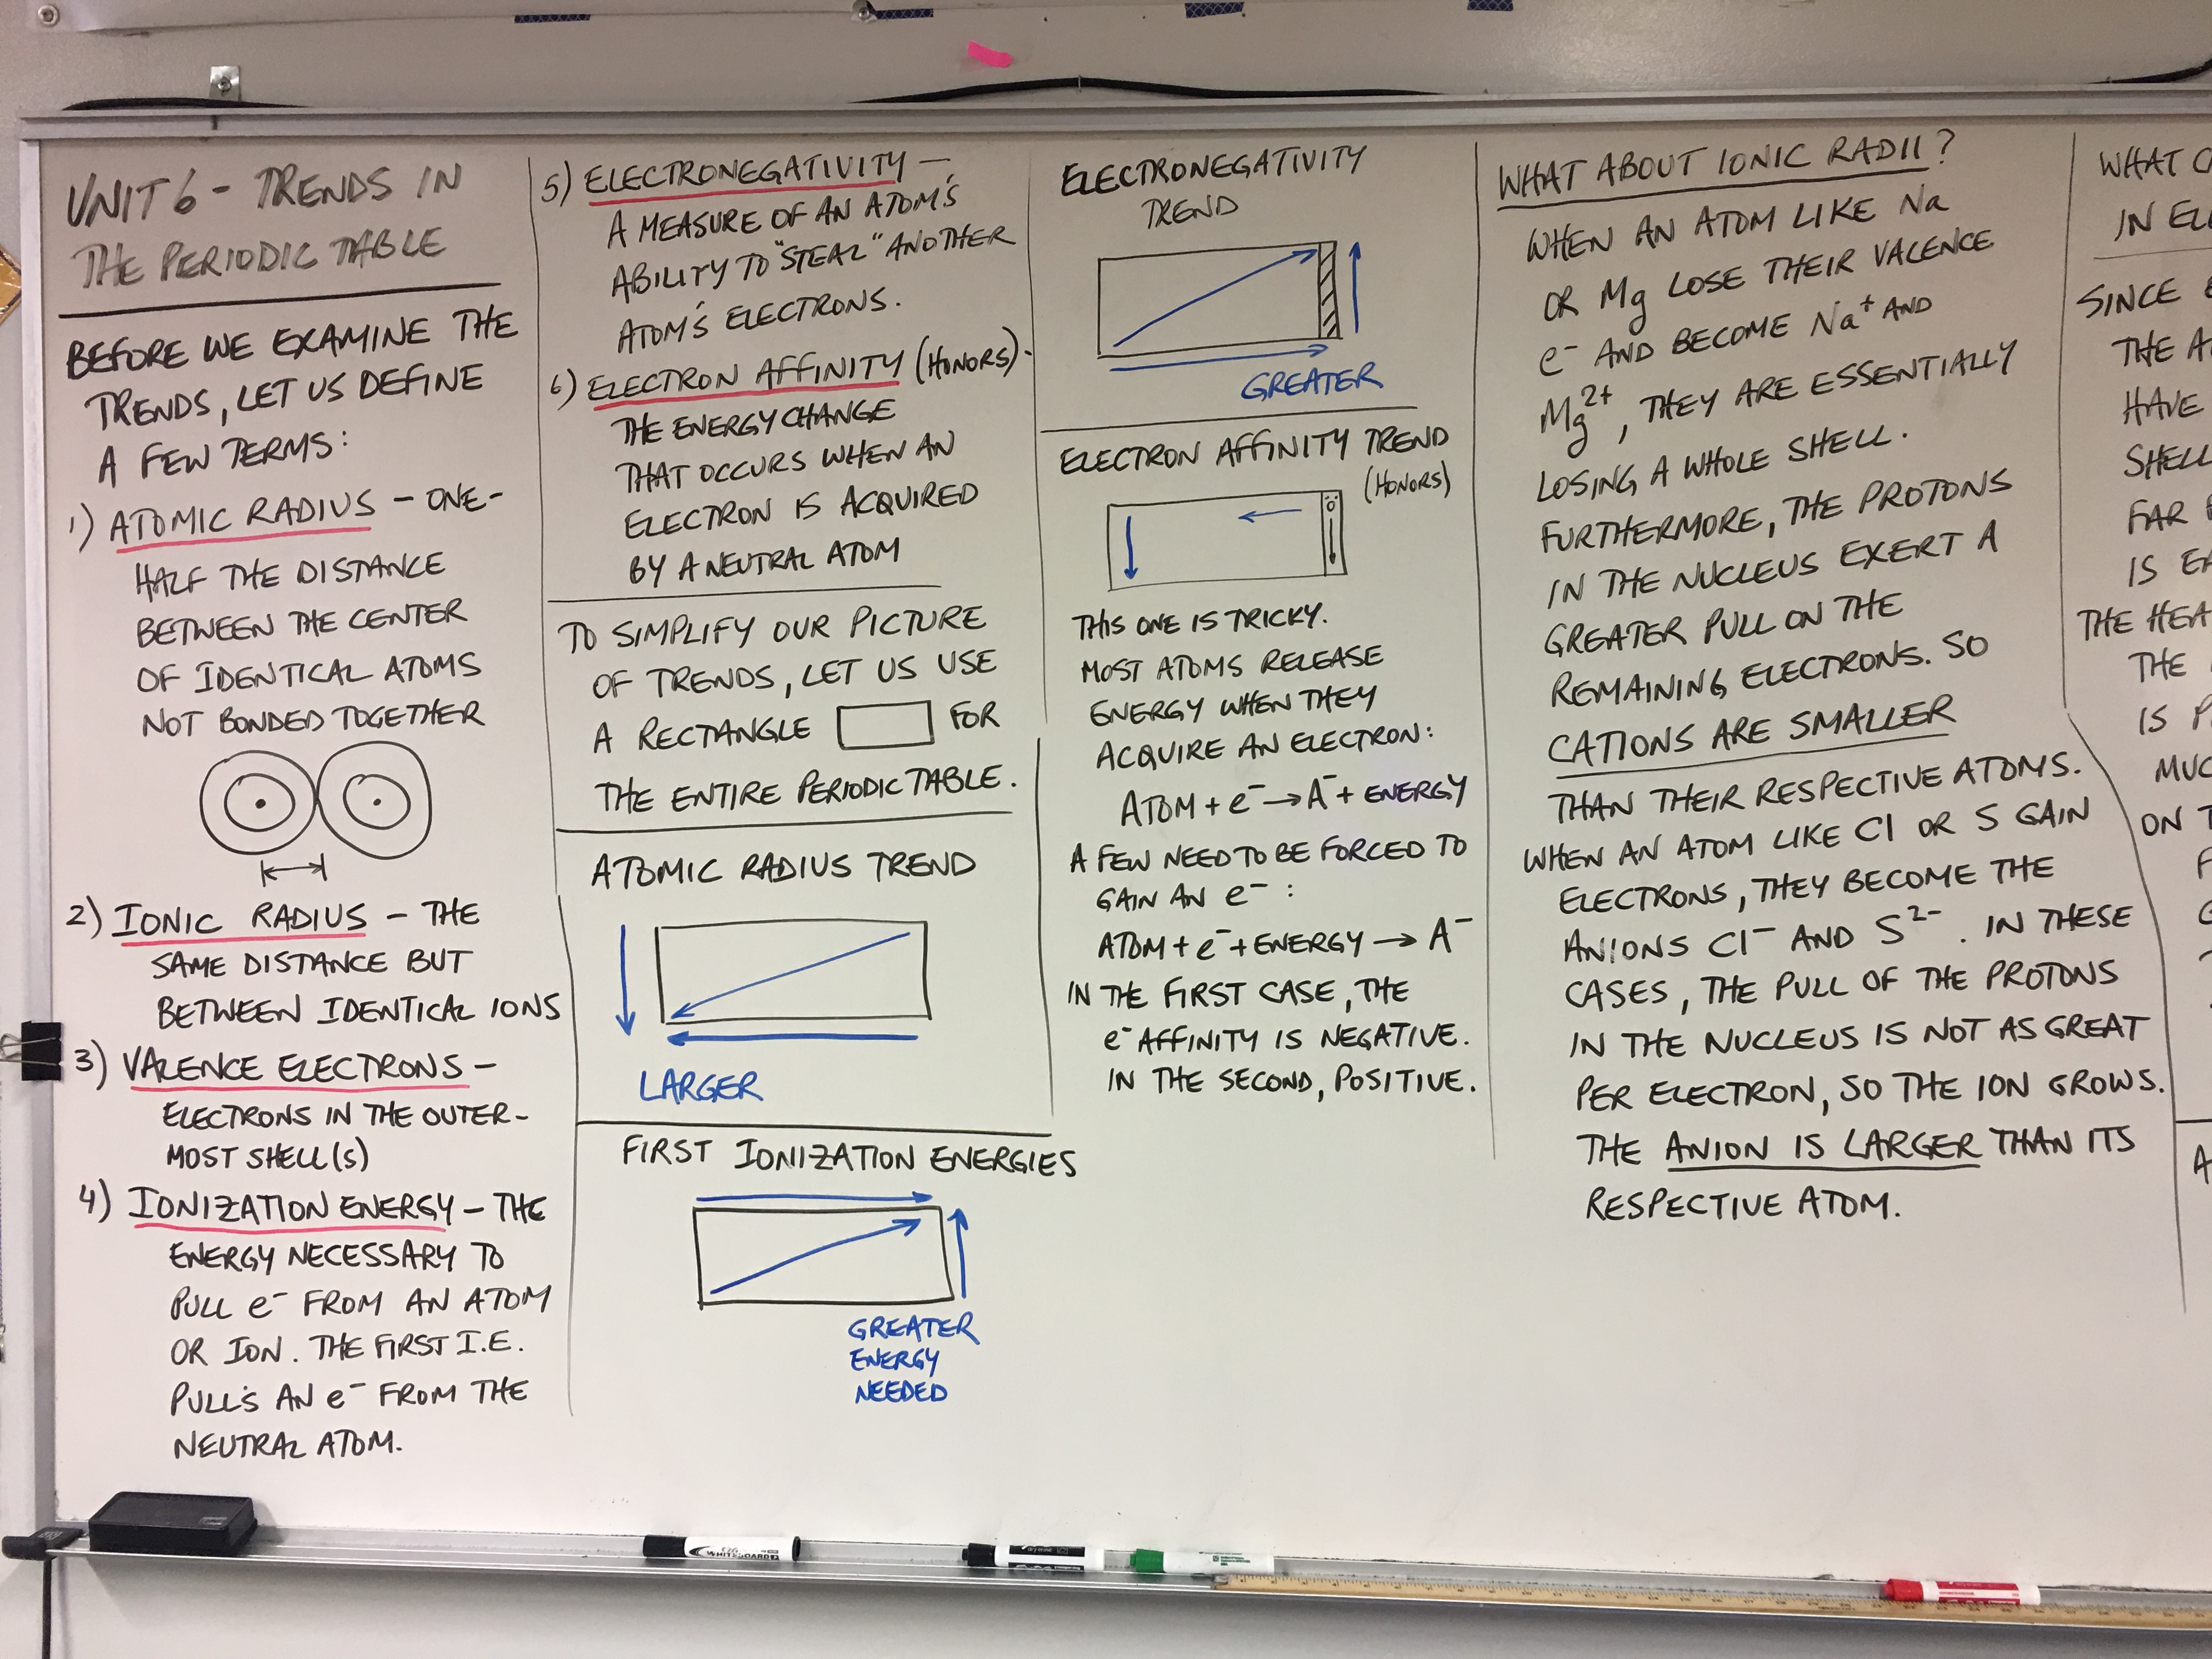 UNIT 6 - TRENDS IN
THE PERIODIC TABLE
BEFORE WE EXAMINE THE
TRENDS, LET US DEFINE
A FEW TERMS:
1) ATOMIC RADIUS - ONE-
HALF THE DISTANCE
BETWEEN THE CENTER
OF IDENTICAL ATOMS
NOT BONDED TOGETHER
2) IONIC RADIUS - THE
SAME DISTANCE BUT
BETWEEN IDENTICAL IONS
3) VALENCE ELECTRONS -
ELECTRONS IN THE OUTER-
MOST SHELL(S)
4) IONIZATION ENERGY - THE
ENERGY NECESSARY TO
PULL e⁻ FROM AN ATOM
OR ION. THE FIRST I.E.
PULL'S AN e⁻ FROM THE
NEUTRAL ATOM.
5) ELECTRONEGATIVITY -
A MEASURE OF AN ATOM'S
ABILITY TO "STEAL" ANOTHER
ATOM'S ELECTRONS.
6) ELECTRON AFFINITY (HONORS) -
THE ENERGY CHANGE
THAT OCCURS WHEN AN
ELECTRON IS ACQUIRED
BY A NEUTRAL ATOM
TO SIMPLIFY OUR PICTURE
OF TRENDS, LET US USE
A RECTANGLE FOR
THE ENTIRE PERIODIC TABLE.
ATOMIC RADIUS TREND
LARGER
FIRST IONIZATION ENERGIES
GREATER
ENERGY
NEEDED
ELECTRONEGATIVITY
TREND
GREATER
ELECTRON AFFINITY TREND
(HONORS)
THIS ONE IS TRICKY.
MOST ATOMS RELEASE
ENERGY WHEN THEY
ACQUIRE AN ELECTRON:
ATOM + e⁻ → A⁻ + ENERGY
A FEW NEED TO BE FORCED TO
GAIN AN e⁻ :
ATOM + e⁻ + ENERGY → A⁻
IN THE FIRST CASE, THE
e⁻ AFFINITY IS NEGATIVE.
IN THE SECOND, POSITIVE.
WHAT ABOUT IONIC RADII?
WHEN AN ATOM LIKE Na
OR Mg LOSE THEIR VALENCE
e⁻ AND BECOME Na⁺ AND
Mg²⁺, THEY ARE ESSENTIALLY
LOSING A WHOLE SHELL.
FURTHERMORE, THE PROTONS
IN THE NUCLEUS EXERT A
GREATER PULL ON THE
REMAINING ELECTRONS. SO
CATIONS ARE SMALLER
THAN THEIR RESPECTIVE ATOMS.
WHEN AN ATOM LIKE Cl OR S GAIN
ELECTRONS, THEY BECOME THE
ANIONS Cl⁻ AND S²⁻. IN THESE
CASES, THE PULL OF THE PROTONS
IN THE NUCLEUS IS NOT AS GREAT
PER ELECTRON, SO THE ION GROWS.
THE ANION IS LARGER THAN ITS
RESPECTIVE ATOM.
WHAT
IN
SINCE
THE
HAVE
SHELL
FAR
IS
THE
THE
IS
ON